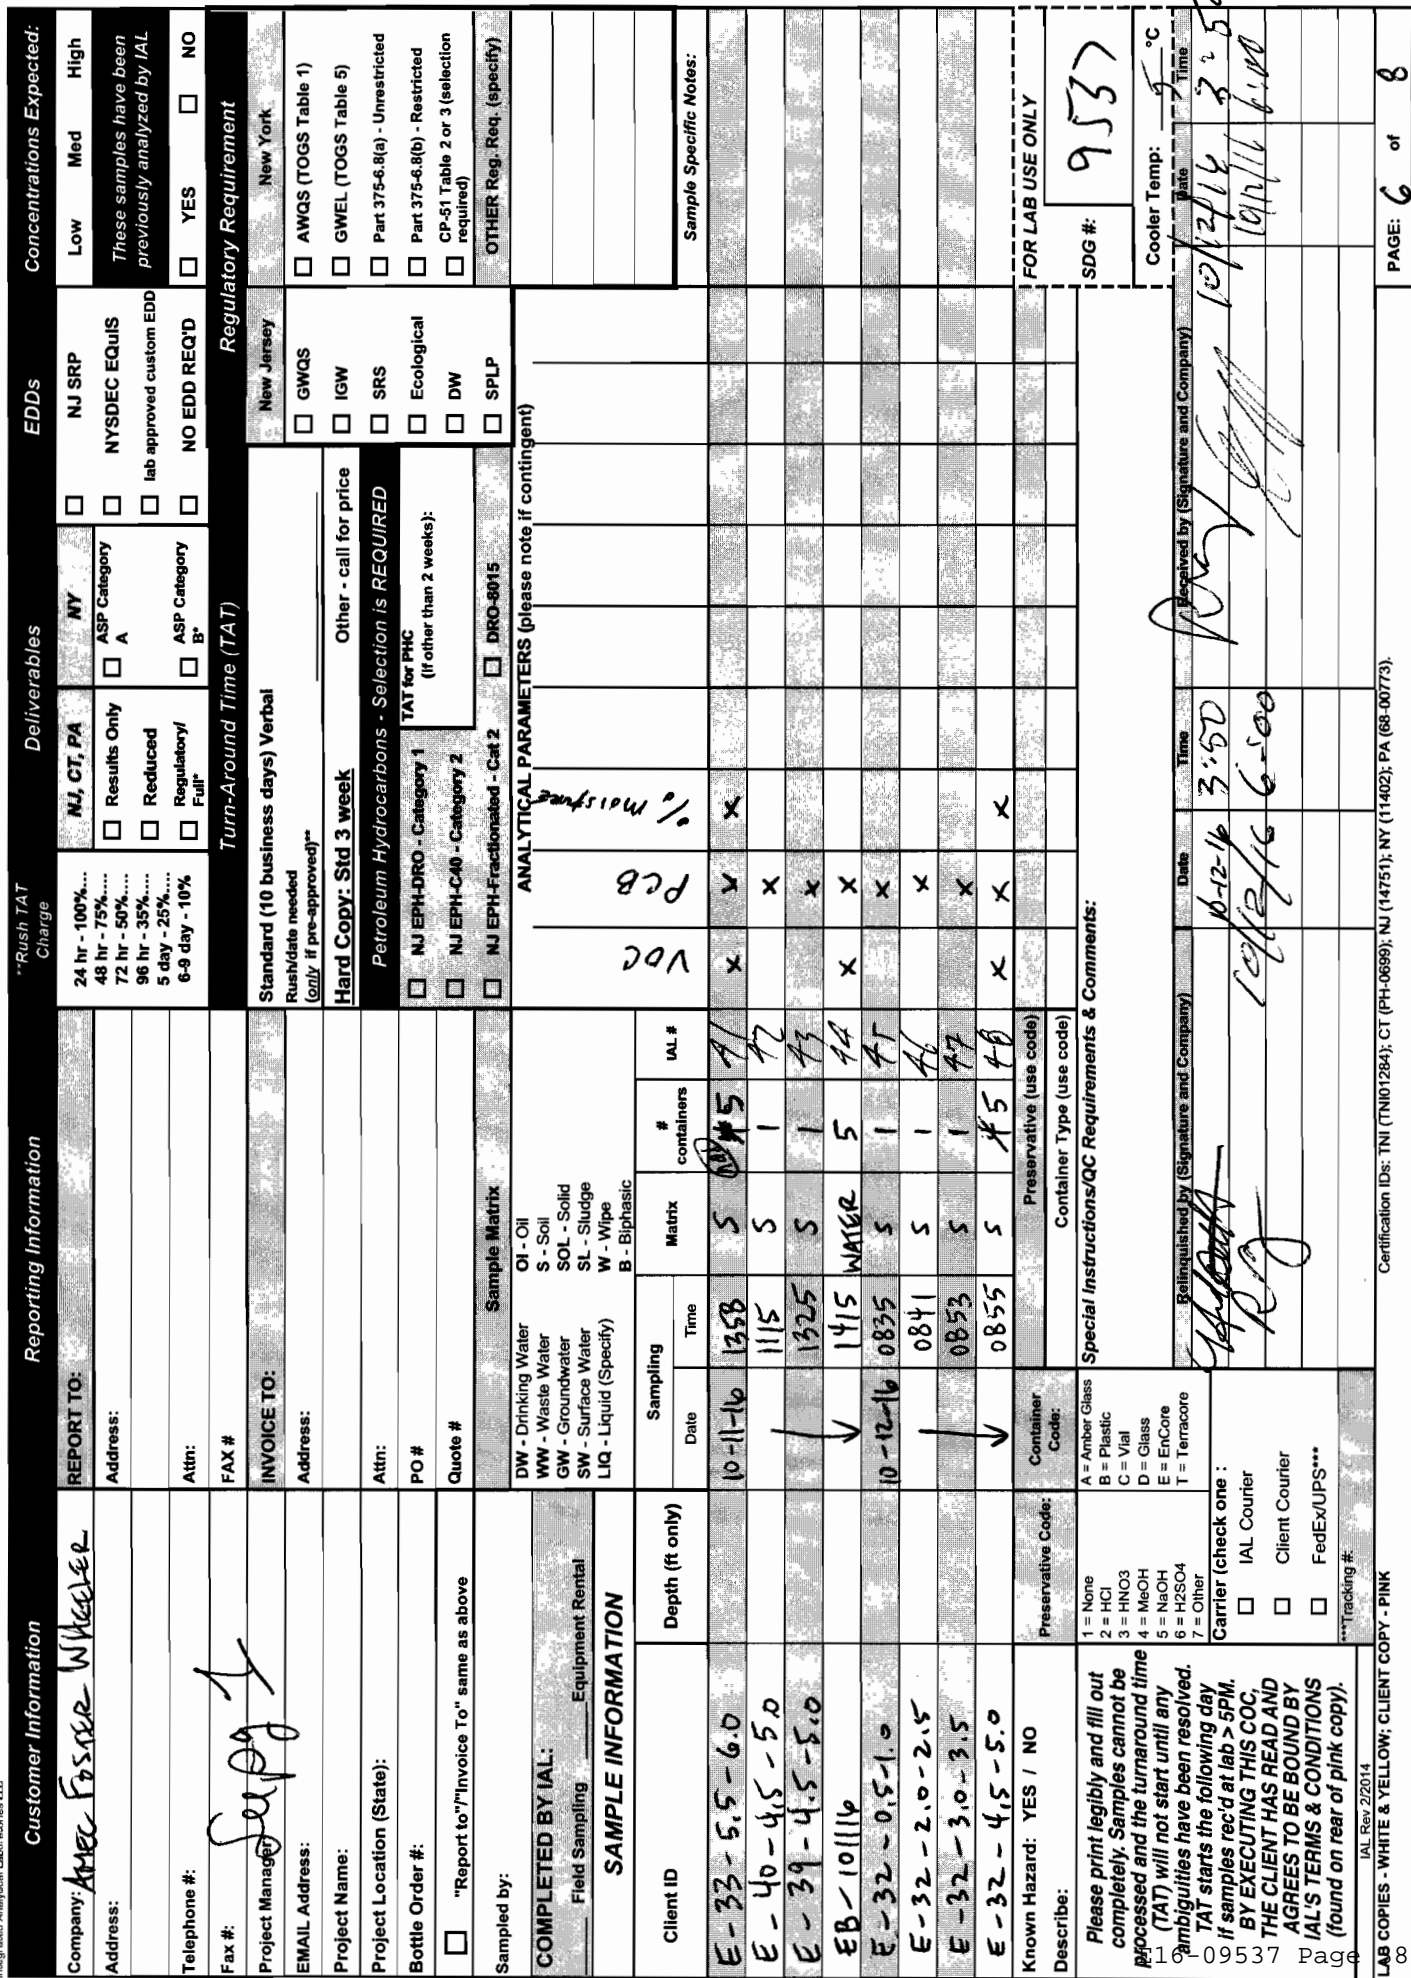 Customer Information Reporting Information **Rush TAT Charge Deliverables EDDs Concentrations Expected:
Company: AMEC FOSTER WHEELER
Address:
Telephone #:
Fax #: See pg 1
Project Manager:
EMAIL Address:
Project Name:
Project Location (State):
Bottle Order #:
"Report to"/"Invoice To" same as above
Sampled by:
REPORT TO:
Address:
Attn:
FAX #
INVOICE TO:
Address:
Attn:
PO #
Quote #
24 hr - 100%...
48 hr - 75%....
72 hr - 50%....
96 hr - 35%....
5 day - 25%....
6-9 day - 10%
NJ, CT, PA
Results Only
Reduced
Regulatory/
Full*
NY
ASP Category
A
ASP Category
B*
NJ SRP
NYSDEC EQuIS
lab approved custom EDD
NO EDD REQ'D
Low Med High
These samples have been
previously analyzed by IAL
YES NO
Turn-Around Time (TAT)
Standard (10 business days) Verbal
Rush/date needed
(only if pre-approved)**
Hard Copy: Std 3 week Other - call for price
Petroleum Hydrocarbons - Selection is REQUIRED
NJ EPH-DRO - Category 1
NJ EPH-C40 - Category 2
NJ EPH-Fractionated - Cat 2
DRO-8015
TAT for PHC
(If other than 2 weeks):
Regulatory Requirement
New Jersey
GWQS
IGW
SRS
Ecological
DW
SPLP
New York
AWQS (TOGS Table 1)
GWEL (TOGS Table 5)
Part 375-6.8(a) - Unrestricted
Part 375-6.8(b) - Restricted
CP-51 Table 2 or 3 (selection
required)
OTHER Reg. Req. (specify)
COMPLETED BY IAL:
Field Sampling Equipment Rental
Sample Matrix
DW - Drinking Water OI - Oil
WW - Waste Water S - Soil
GW - Groundwater SOL - Solid
SW - Surface Water SL - Sludge
LIQ - Liquid (Specify) W - Wipe
B - Biphasic
ANALYTICAL PARAMETERS (please note if contingent)
VOC PCB % moisture
SAMPLE INFORMATION
Client ID Depth (ft only) Sampling Date Time Matrix # containers IAL # Sample Specific Notes:
E-33-5.5-6.0 10-11-16 1358 S 5 41 X X X
E-40-4.5-5.0 1115 S 1 42 X
E-39-4.5-5.0 1325 S 1 43 X
EB-101116 1415 WATER 5 44 X X
E-32-0.5-1.0 10-12-16 0835 S 1 45 X
E-32-2.0-2.5 0841 S 1 46 X
E-32-3.0-3.5 0853 S 1 47 X
E-32-4.5-5.0 0855 S 5 48 X X X
Known Hazard: YES / NO
Describe:
Preservative Code:
1 = None
2 = HCl
3 = HNO3
4 = MeOH
5 = NaOH
6 = H2SO4
7 = Other
Container
Code:
A = Amber Glass
B = Plastic
C = Vial
D = Glass
E = EnCore
T = Terracore
Preservative (use code)
Container Type (use code)
FOR LAB USE ONLY
SDG #: 9537
Cooler Temp: 5 °C
Special Instructions/QC Requirements & Comments:
Please print legibly and fill out
completely. Samples cannot be
processed and the turnaround time
(TAT) will not start until any
ambiguities have been resolved.
TAT starts the following day
if samples rec'd at lab > 5PM.
BY EXECUTING THIS COC,
THE CLIENT HAS READ AND
AGREES TO BE BOUND BY
IAL'S TERMS & CONDITIONS
(found on rear of pink copy).
Carrier (check one :
IAL Courier
Client Courier
FedEx/UPS***
***Tracking #:
Relinquished by (Signature and Company) Date Time Received by (Signature and Company) Date Time
10-12-16 3:50 10/12/16
10/12/16 6:00 10/12/16
IAL Rev 2/2014
LAB COPIES - WHITE & YELLOW; CLIENT COPY - PINK
Certification IDs: TNI (TNI01284); CT (PH-0699); NJ (14751); NY (11402); PA (68-00773).
PAGE: 6 of 8
E16-09537 Page